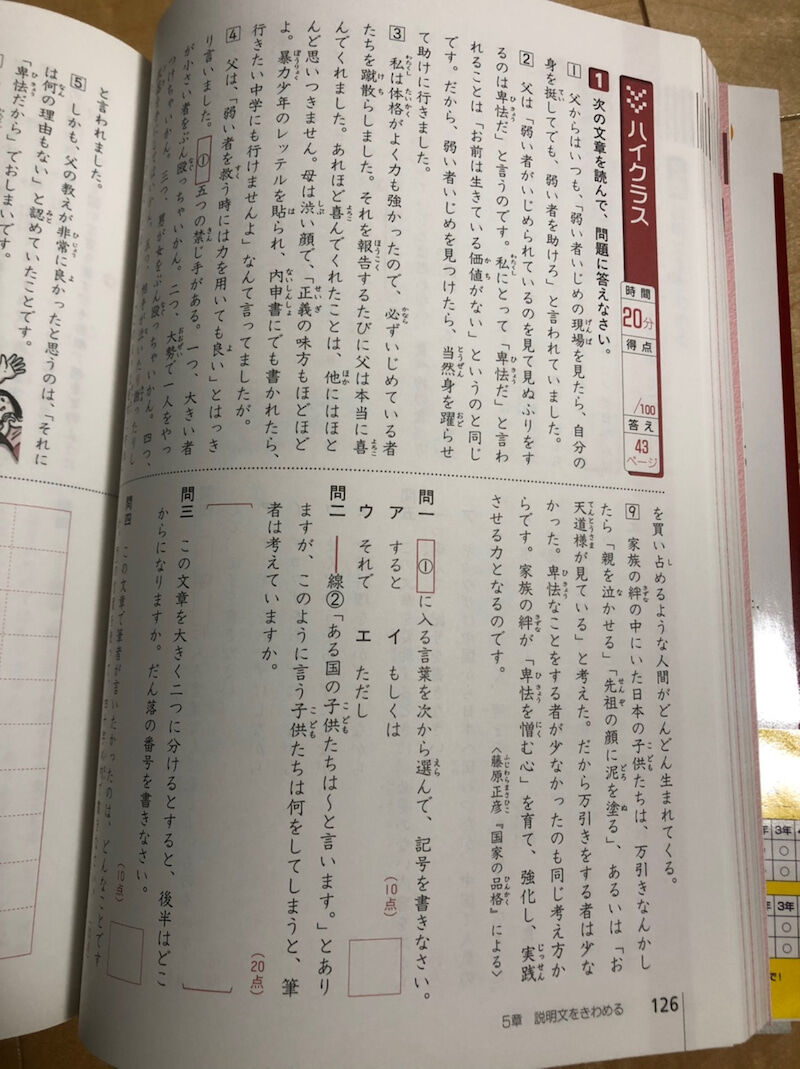 ハイクラス
時間
20分
得点
/100
答え
43
ページ
1 次の文章を読んで、問題に答えなさい。
1 父からはいつも、「弱い者いじめの現場を見たら、自分の
身を挺してでも、弱い者を助けろ」と言われていました。
2 父は「弱い者がいじめられているのを見て見ぬふりをす
るのは卑怯だ」と言うのです。私にとって「卑怯だ」と言わ
れることは「お前は生きている価値がない」というのと同じ
です。だから、弱い者いじめを見つけたら、当然身を躍らせ
て助けに行きました。
3 私は体格がよく力も強かったので、必ずいじめている者
たちを蹴散らしました。それを報告するたびに父は本当に喜
んでくれました。あれほど喜んでくれたことは、他にはほと
んど思いつきません。母は渋い顔で、「正義の味方もほどほど
よ。暴力少年のレッテルを貼られ、内申書にでも書かれたら、
行きたい中学にも行けませんよ」なんて言ってましたが。
4 父は、「弱い者を救う時には力を用いても良い」とはっき
り言いました。①五つの禁じ手がある。一つ、大きい者
が小さい者をぶん殴っちゃいかん。二つ、大勢で一人をやっ
つけちゃいかん。三つ、男が女をぶん殴っちゃいかん。四つ、
を買い占めるような人間がどんどん生まれてくる。
9 家族の絆の中にいた日本の子供たちは、万引きなんかし
たら「親を泣かせる」「先祖の顔に泥を塗る」、あるいは「お
天道様が見ている」と考えた。だから万引きをする者は少な
かった。卑怯なことをする者が少なかったのも同じ考え方か
らです。家族の絆が「卑怯を憎む心」を育て、強化し、実践
させる力となるのです。
〈藤原正彦『国家の品格』による〉
問一 ①に入る言葉を次から選んで、記号を書きなさい。
(10点)
ア すると イ もしくは
ウ それで エ ただし
問二 ――線②「ある国の子供たちは〜と言います。」とあり
ますが、このように言う子供たちは何をしてしまうと、筆
者は考えていますか。
(20点)
問三 この文章を大きく二つに分けるとすると、後半はどこ
からになりますか。だん落の番号を書きなさい。
(10点)
問四 この文章で筆者が言いたかったのは、どんなことです
126
5章 説明文をきわめる
と言われました。
5 しかも、父の教えが非常に良かったと思うのは、「それに
は何の理由もない」と認めていたことです。
「卑怯だから」でおしまいです。
3年
3年